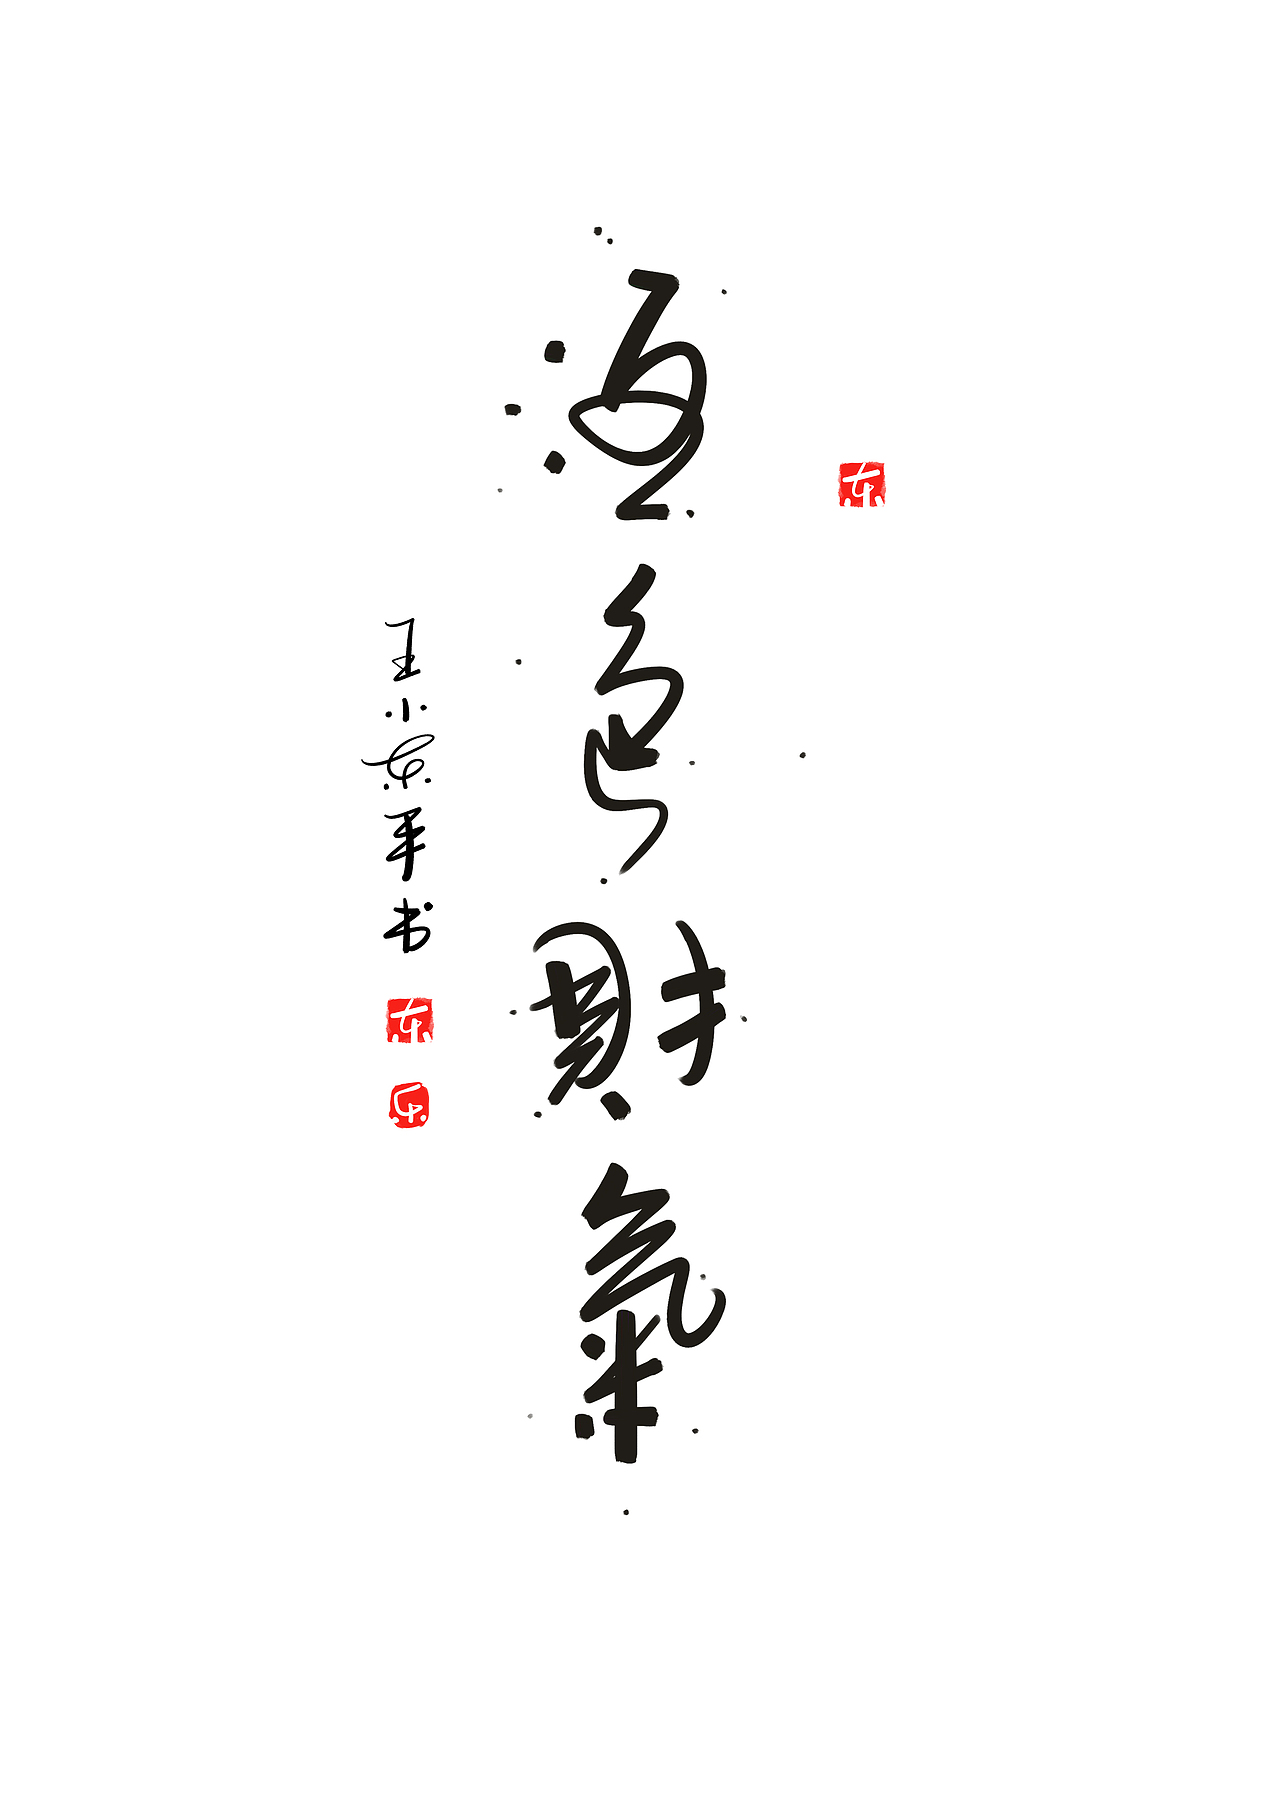 酒色財氣
王小东手书
东
东